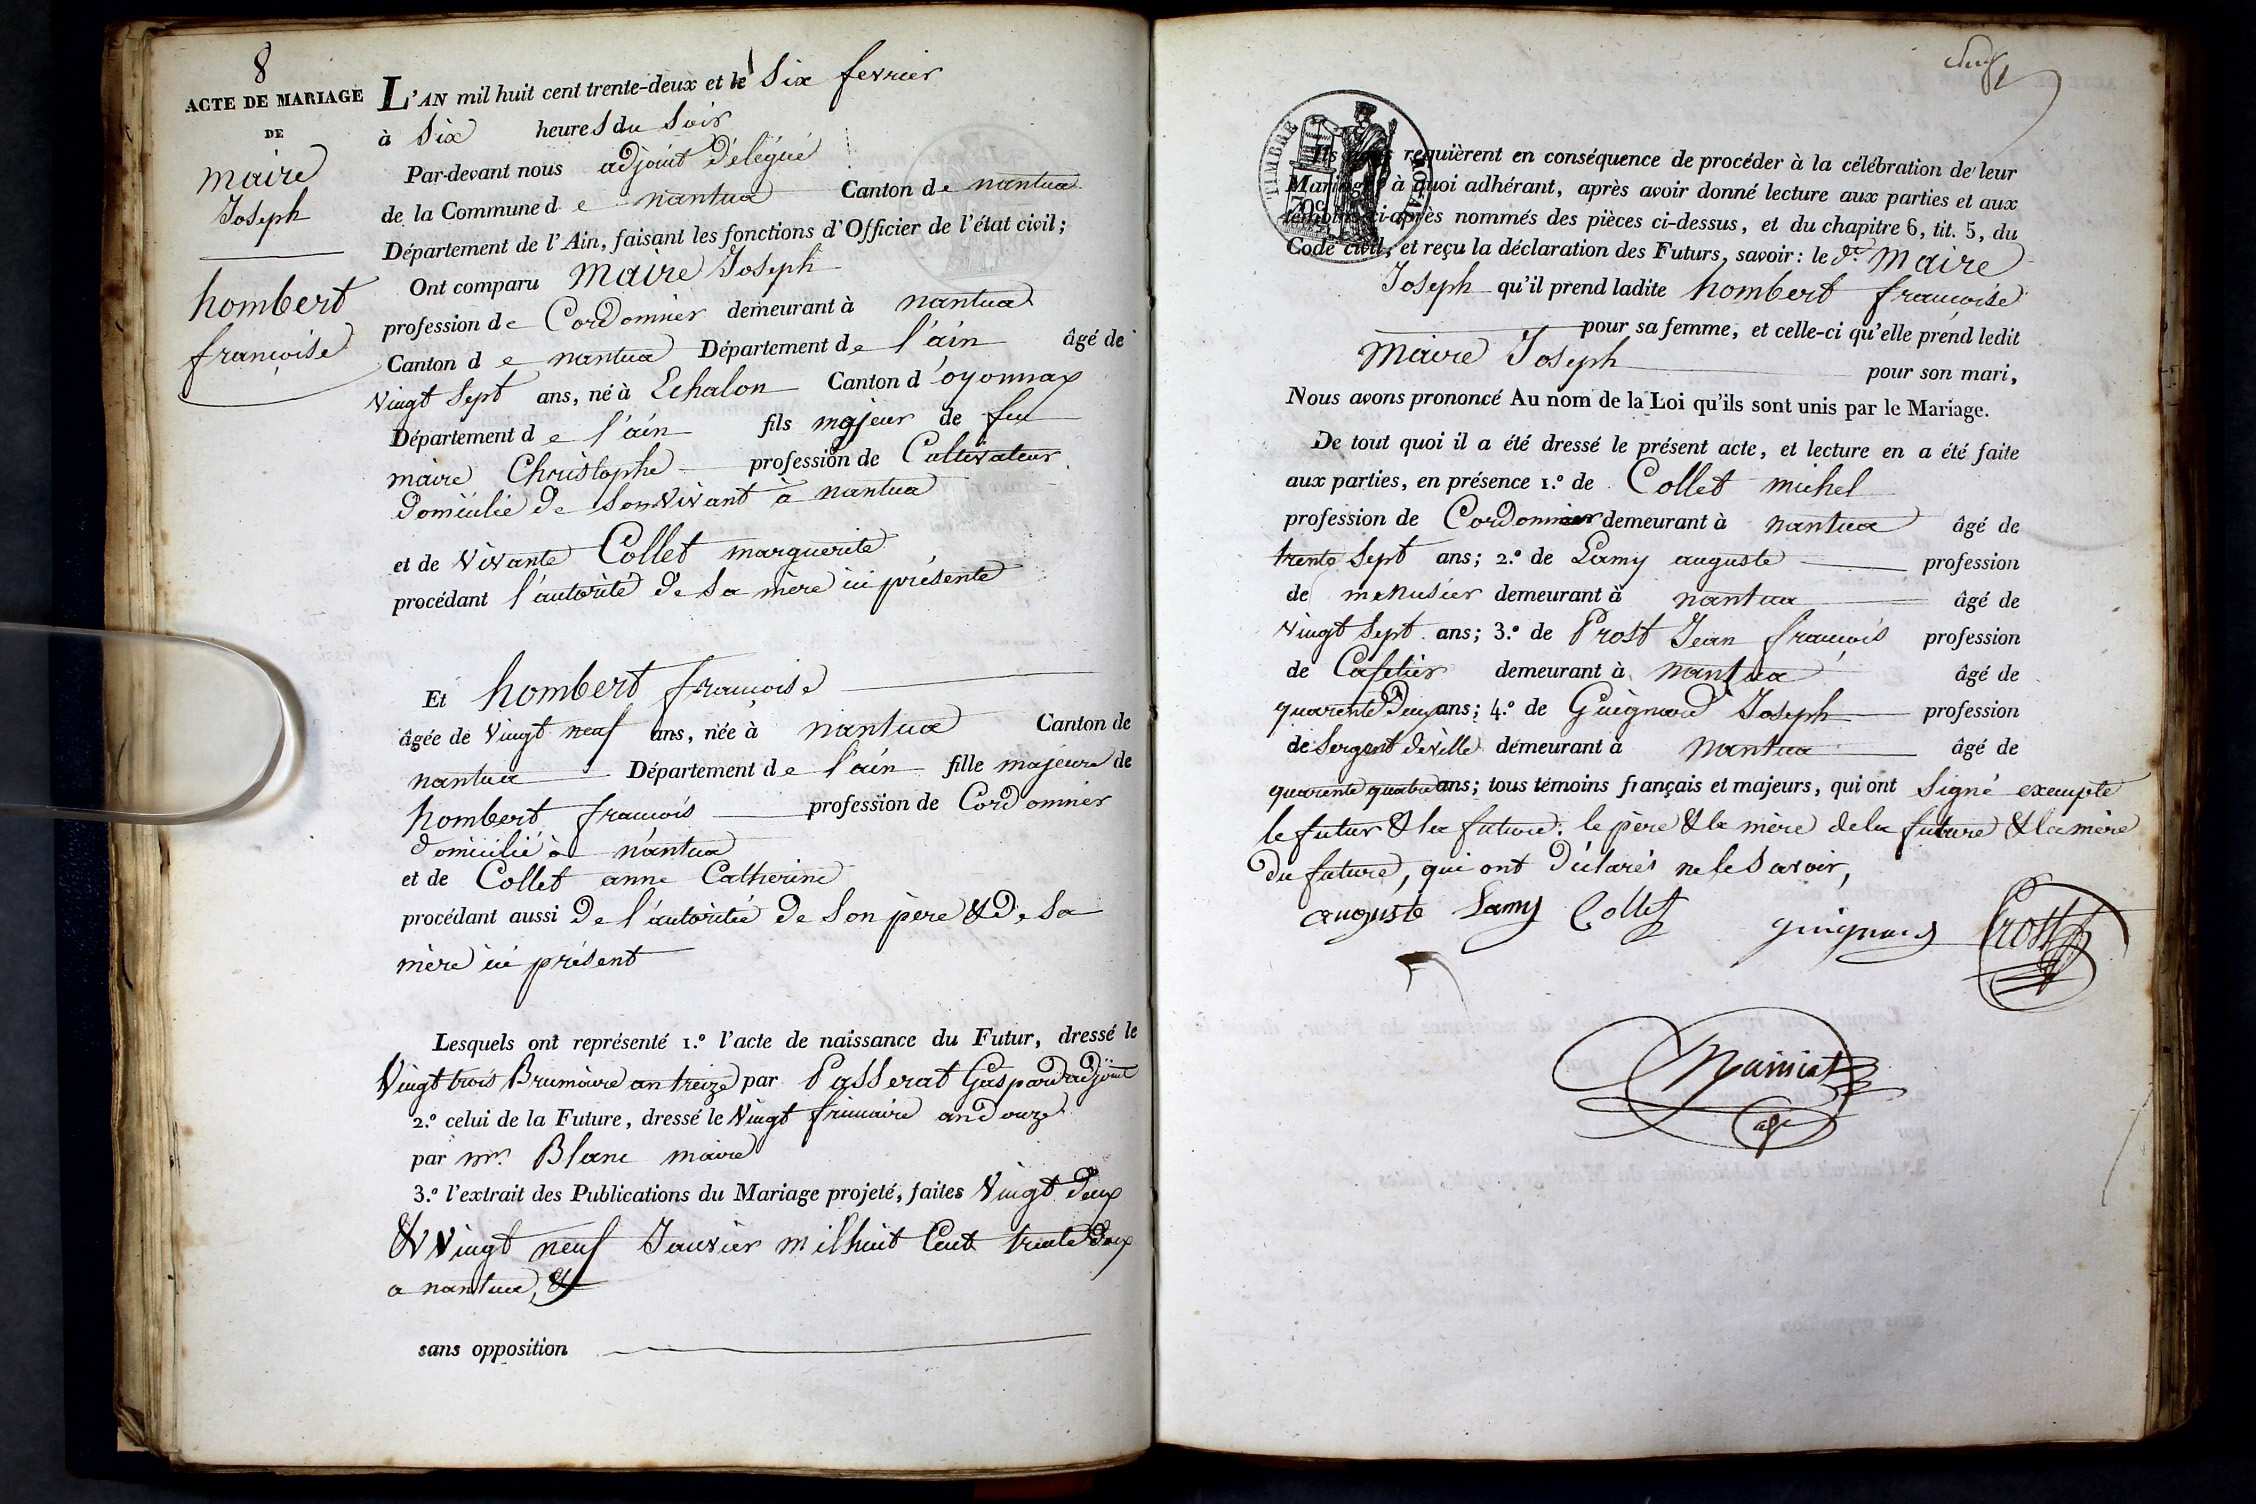 8
ACTE DE MARIAGE
DE
maire
Joseph
hombert
françoise
L'AN mil huit cent trente-deux et le Six fevrier
à Six heures du Soir
Par-devant nous adjoint délégué
de la Commune de nantua Canton de nantua
Département de l'Ain, faisant les fonctions d'Officier de l'état civil;
Ont comparu Maire Joseph
profession de Cordonnier demeurant à nantua
Canton de nantua Département de l'ain âgé de
Vingt Sept ans, né à Echalon Canton d'oyonnax
Département de l'ain fils majeur de feu
maire Christophe profession de Cultivateur
domicilié de Son Vivant à nantua
et de Vivante Collet marguerite
procédant l'autorité de Sa mère ici présente
Et hombert françoise
âgée de Vingt neuf ans, née à nantua Canton de
nantua Département de l'ain fille majeure de
hombert francois profession de Cordonnier
domicilié à nantua
et de Collet anne Catherine
procédant aussi de l'autorité de Son père & de Sa
mère ici présent
Lesquels ont représenté 1.º l'acte de naissance du Futur, dressé le
Vingt trois Brumaire an treize par Passerat Gaspard adjoint
2.º celui de la Future, dressé le Vingt frimaire an onze
par mr. Blanc maire
3.º l'extrait des Publications du Mariage projeté, faites Vingt deux
& Vingt neuf Janvier mil huit Cent trente deux
a nantua, &
sans opposition
TIMBRE ROYAL
70c
Ils nous requièrent en conséquence de procéder à la célébration de leur
Mariage; à quoi adhérant, après avoir donné lecture aux parties et aux
témoins ci-après nommés des pièces ci-dessus, et du chapitre 6, tit. 5, du
Code civil, et reçu la déclaration des Futurs, savoir: le dt. Maire
Joseph qu'il prend ladite hombert françoise
pour sa femme, et celle-ci qu'elle prend ledit
Maire Joseph pour son mari,
Nous avons prononcé Au nom de la Loi qu'ils sont unis par le Mariage.
De tout quoi il a été dressé le présent acte, et lecture en a été faite
aux parties, en présence 1.º de Collet michel
profession de Cordonnier demeurant à nantua âgé de
trente Sept ans; 2.º de Lamy auguste profession
de menusier demeurant à nantua âgé de
Vingt Sept ans; 3.º de Prost Jean françois profession
de Cafetier demeurant à nantua âgé de
quarente Deux ans; 4.º de Guignard Joseph profession
de Sergent de ville demeurant à nantua âgé de
quarente quatre ans; tous témoins français et majeurs, qui ont Signé exempté
le futur & la future. le père & la mère de la future & la mère
du future, qui ont déclarés ne le Savoir,
auguste Lamy Collet guignard Prost